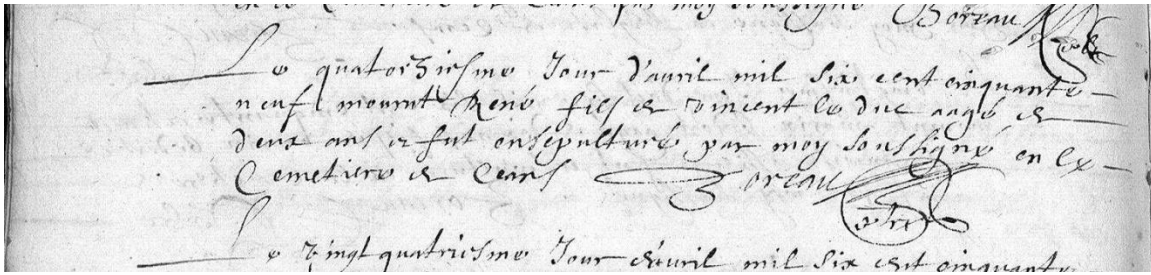 en le Cemetiere de Ceans par moy soussigné Boreau
Le quatorziesme Jour d'avril mil six cent cinquante
neuf mourut René fils de vincent le duc aagé de
deux ans et fut ensepulturé par moy soussigné en le
Cemetiere de Ceans Boreau
Le vingt quatriesme Jour d'avril mil six cent cinquante